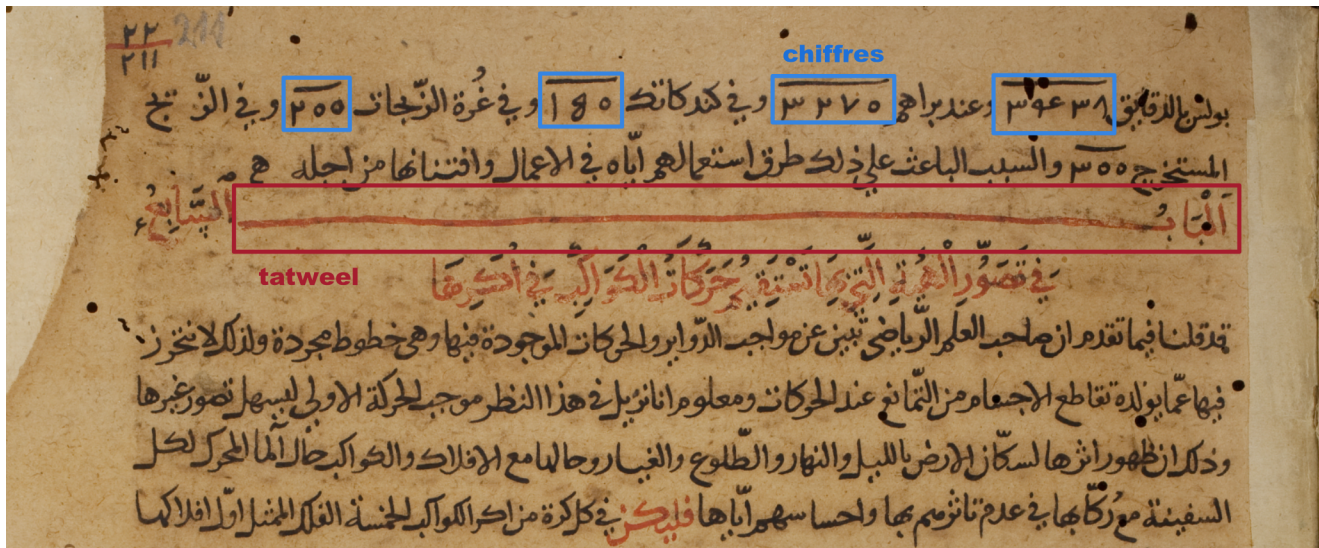 ٢٢
٢١١
211
chiffres
بولس بالدقايق ٣٩٤٣٨ وعند براهم ٣٢٧٥ وفي كندكاتك ١٤٥ وفي غُرة الزّيجات ٢٥٥ وفي الزّيج
المستخرج ٣٥٥ والسبب الباعث علي ذلك طرق استعمالهم ايّاه في الاعمال وافتنانها من اجله هم
اَلْبَابُ السَّابِعُ
tatweel
فِي تَصَوُّرِ الْهَيْئَةِ الَّتِي بِهَا تَسْتَقِيمُ حَرَكَاتُ الْكَوَاكِبِ فِي اُكَرِهَا
قد قلنا فيما تقدم ان صاحب العلم الرّياضي تبين عن مواجب الدّواير والحركات الموجودة فيها وهي خطوط مجردة ولذلك لا نتحرز
فيها عمّا يولده تقاطع الاجسام من التّمانع عند الحركات ومعلوم انا نزيل في هذا النظر موجب الحركة الاولي ليسهل تصور غيرها
وذلك ان ظهور اثرها لسكّان الارض بالليل والنهار والطّلوع والغيب وحالها مع الافلاك والكواكب حال الما المحرك لكل
السفينة مع رُكّابها في عدم تاثرهم بها واحساسهم ايّاها فليكن في كل كرة من اكر الكواكب الخمسة الفلك الممثل اوّل افلاكها